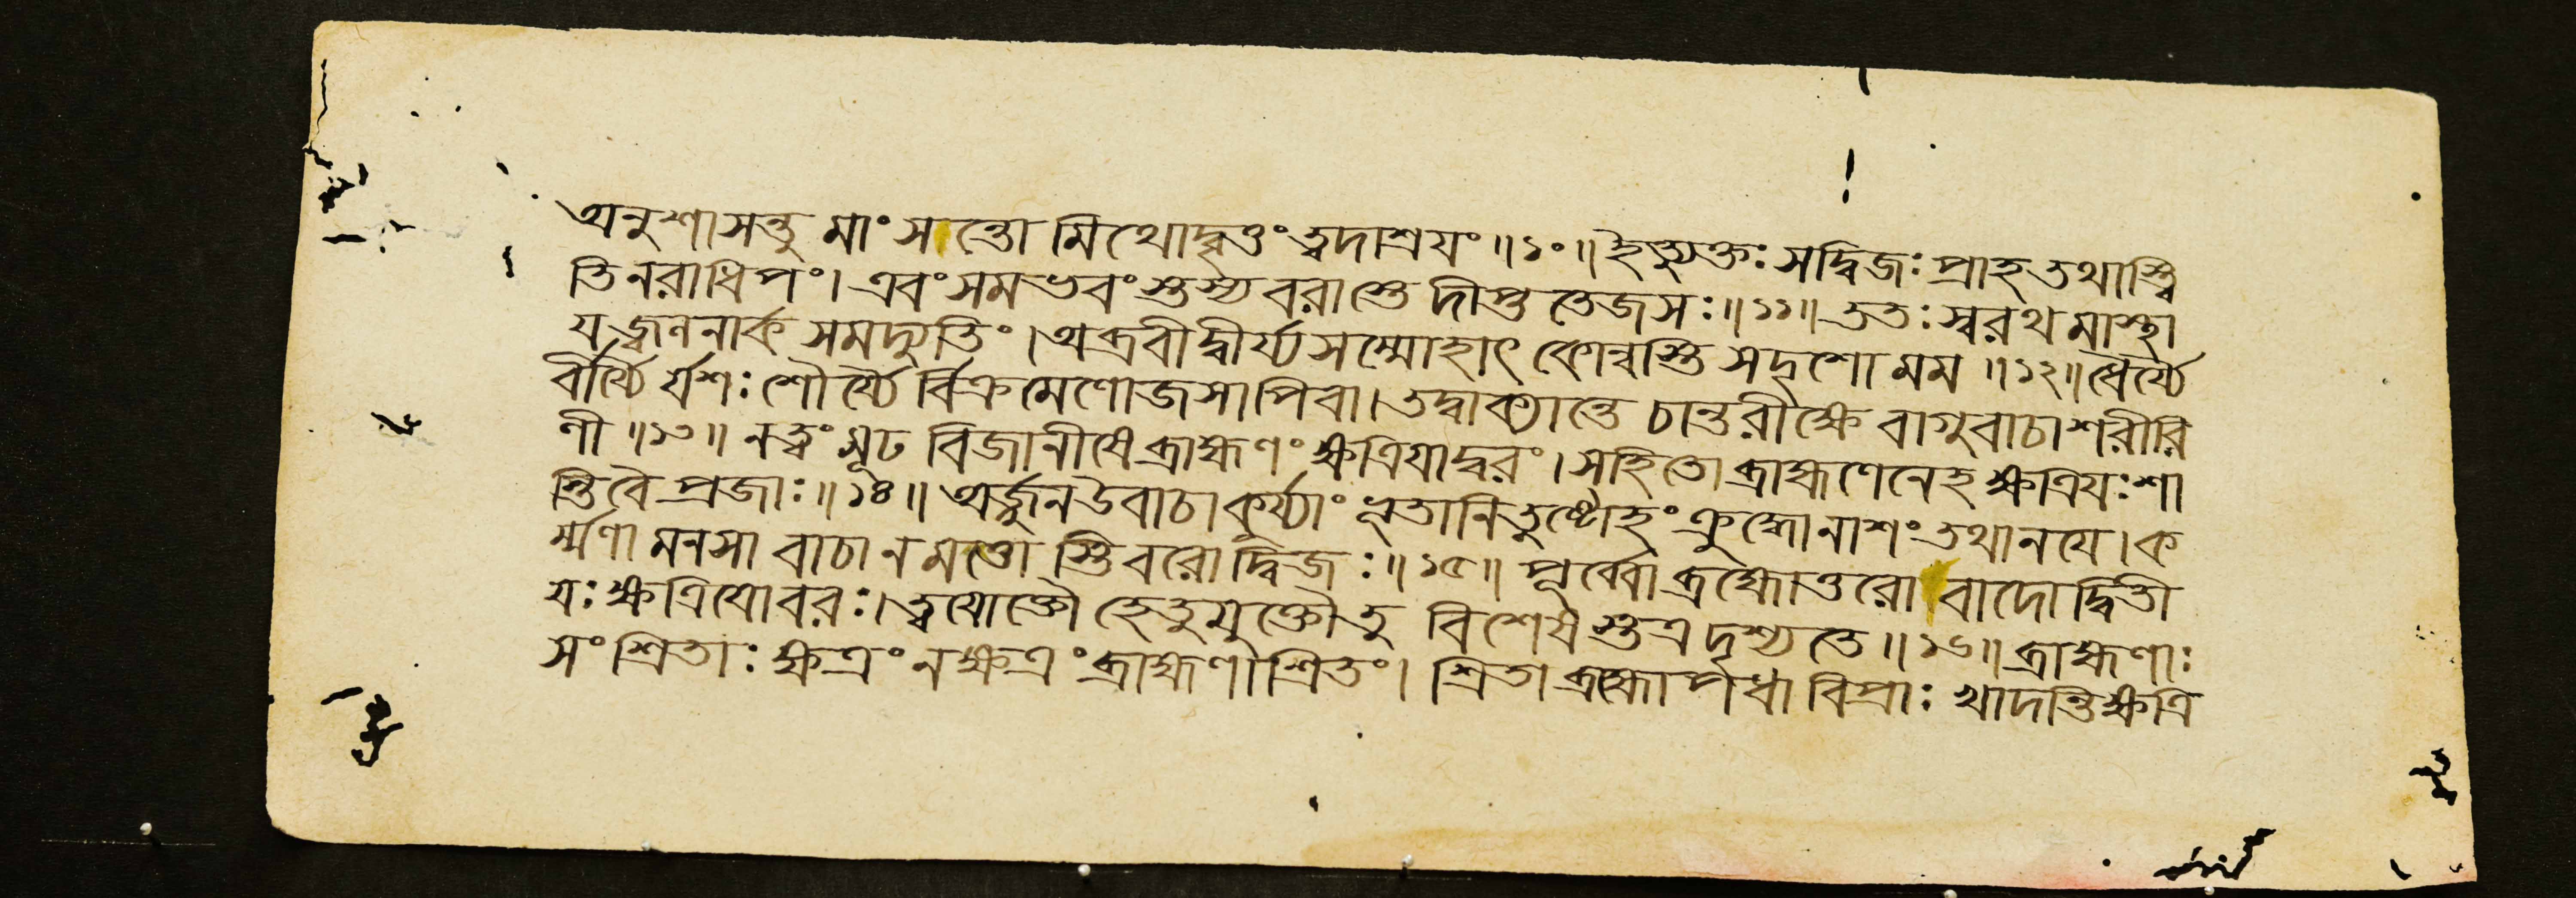 অনুশাসন্তু মাং সন্তো মিথোদ্বৃতং ত্বদাশ্রযং॥১০॥ইত্যুক্তঃ সদ্বিজঃ প্রাহ তথাস্ত্বি
তি নরাধিপং। এবং সমভবং স্তস্য বরাস্তে দীপ্ত তেজসঃ॥১১॥ ততঃ স্বরথমাস্থা
য জ্বলনার্ক সমদ্যুতিং। অব্রবীদ্বীর্য্য সম্মোহাৎ কোন্বস্তি সদৃশো মম॥১২॥ ধৈর্য্যে
বীর্য্যে র্যশঃ শৌর্য্যৈ র্বিক্রমেণোজসাপিবা। তদ্বাক্যান্তে চান্তরীক্ষে বাগুবাচাশরীরি
ণী॥১৩॥ নত্বং মূঢ বিজানীষে ব্রাহ্মণং ক্ষত্রিযাদ্বরং। সহিতো ব্রাহ্মণেনেহ ক্ষত্রিযঃ শা
স্তি বৈ প্রজাঃ॥১৪॥ অর্জুন উবাচ। কুর্য্যাং ভূতানি তুষ্টোহং ক্রুদ্ধোনাশং তথানযে। ক
র্ম্মণা মনসা বাচা ন মত্তো স্তি বরো দ্বিজঃ॥১৫॥ পূর্ব্বো ব্রহ্মোত্তরো বাদো দ্বিতী
যঃ ক্ষত্রিযোবরঃ। ত্বযোক্তৌ হেতুযুক্তৌ তু বিশেষ স্তত্র দৃশ্যতে॥১৬॥ ব্রাহ্মণাঃ
সংশ্রিতাঃ ক্ষত্রং ন ক্ষত্রং ব্রাহ্মণাশ্রিতং। শ্রিতা ব্রহ্মোপধা বিপ্রাঃ খাদন্তি ক্ষত্রি